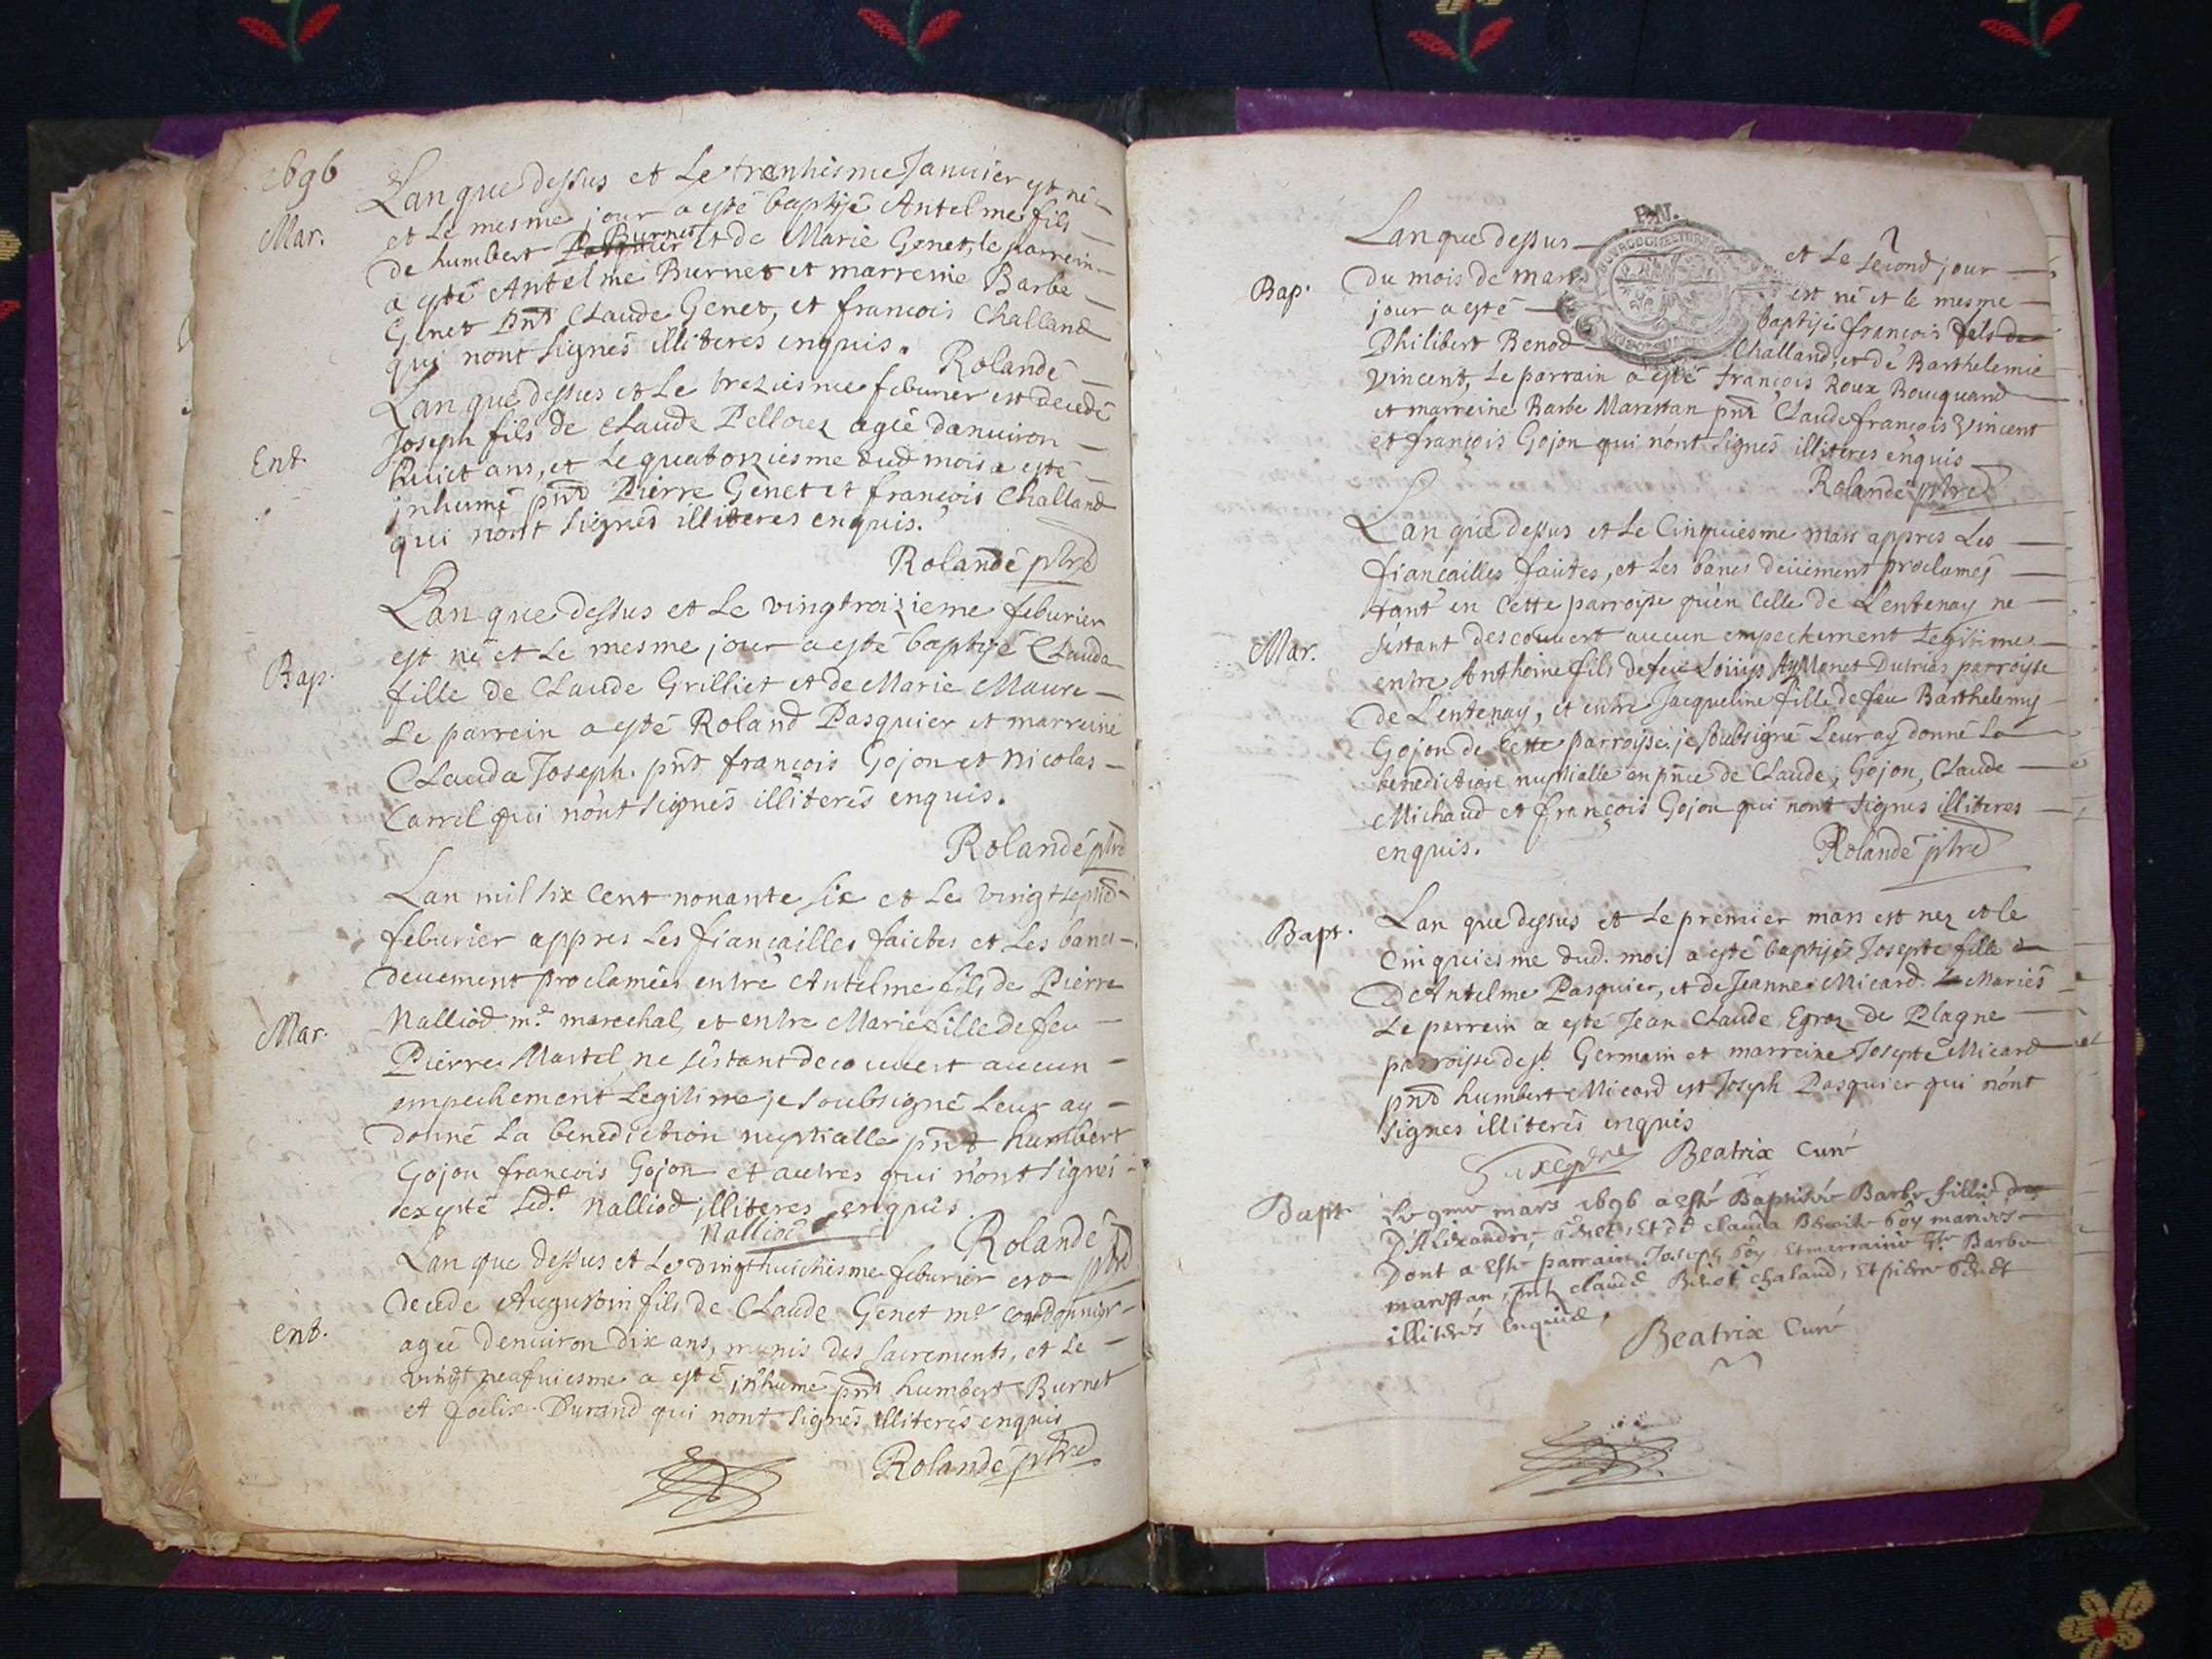 1696
Lan que dessus et Le trenhiesme Januier est né
Mar.
et Le mesme jour a esté baptisé Antelme fils
de humbert Pasquier Burnet et de Marie Genet, le parrein
a esté Antelme Burnet et marreine Barbe
Genet pnt Claude Genet, et francois Challand
qui nont signés illiteres enquis. Rolandé
Lan que dessus et Le treziesme feburier est decedé
Joseph fils de Claude Pellouz agée danuiron
Ent.
huict ans, et Le quatorziesme dud mois a esté
jnhumé pnt Pierre Genet et francois Challand
qui nont signés illiteres enquis.
Rolandé ptre
Lan que dessus et Le vingtroizieme feburier
est né et Le mesme jour a esté baptisé Clauda
Bap.
fille de Claude Grilliet et de Marie Maure
Le parrein a esté Roland Pasquier et marreine
Clauda Joseph. pnt francois Gojon et nicolas
Carrel qui nont signés illiterés enquis.
Rolandé ptre
Lan mil six Cent nonante six et Le vingtseptie
feburier appres Les fiancailles faictes et Les bancs
deuement proclamées entre Antelme fils de Pierre
Mar.
Nalliod me marechal, et entre Marie fille de feu
Pierre Martel ne s'estant decouuert aucun
empechement Legitime je soubsigné Leur ay
donné La benediction nuptialle pnt humbert
Gojon francois Gojon et autres qui nont signés
excepté Led. Nalliod illiteres enquis.
Nalliod
Rolandé ptre
Lan que dessus et Le vingthuictiesme feburier est
decede Augustin fils de Claude Genet me cordonnier
ent.
agée denuiron dix ans, munis des sacrements, et Le
vingt neufuiesme a esté jnhumé pnt humbert Burnet
et foelix Durand qui nont signés illiterés enquis
Rolandé ptre
Lan que dessus et Le second jour
Bap.
du mois de mars est né et le mesme
jour a esté baptisé françois fils de
Philibert Benod Challand, et de Barthelemie
Vincent, Le parrain a esté françois Roux Bouquand
et marreine Barbe Marestan pnt Claude françois Vincent
et françois Gojon qui nont signés illiteres enquis
Rolandé ptre
Lan que dessus et Le Cinquiesme mars appres Les
fiancailles faites, et Les bancs deüement proclamés
tant en Cette parroisse qu'en Celle de Lentenay ne
Mar.
s'estant descouuert aucun empechement Legitime
entre Anthoine fils de feu Louys Aymonet Dutrias parroisse
de Lentenay, et entre Jacqueline fille de feu Barthelemy
Gojon de Cette parroisse je soubsigné Leur ay donné La
benediction nuptialle en pnce de Claude, Gojon, Claude
Michaud et françois Gojon qui nont signes illiteres
enquis.
Rolandé ptre
Lan que dessus et Le premier mars est nez et le
Bapt.
Cinquiesme dud. mois a esté baptisée Josepte fille
D'Antelme Pasquier, et de Jeanne Micard Mariés
Le parrein a esté Jean Claude Egraz de Plagne
parroisse de st. Germain et marreine Josepte Micard
pnt humbert Micard et Joseph Pasquier qui n'ont
signes illiterés enquis
Beatrix Curé
Bapt.
Le 9me mars 1696 a esté Baptisée Barbe fillie
D'Alixandre Genet, et de clauda Benoite Goy mariés
Dont a esté parrain Joseph Goy et marraine Barbe
marestan, pnt claude Benoi chaland, et pierre Genet
illiterés enquis.
Beatrix Curé